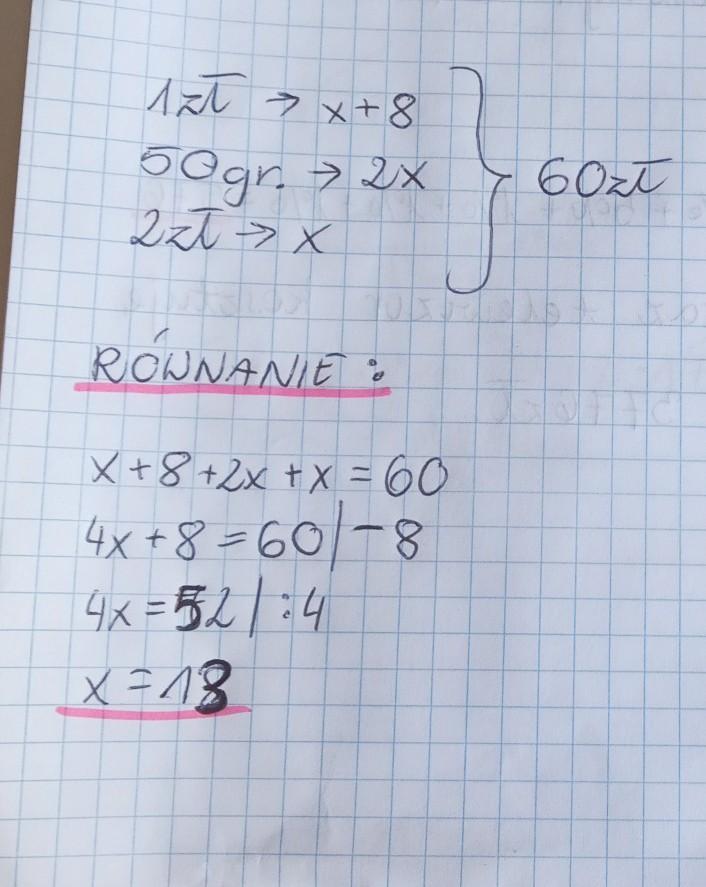 1zł → x+8
50gr. → 2x
2zł → x
} 60zł
RÓWNANIE:
x+8+2x+x=60
4x+8=60/-8
4x=52/:4
x=13